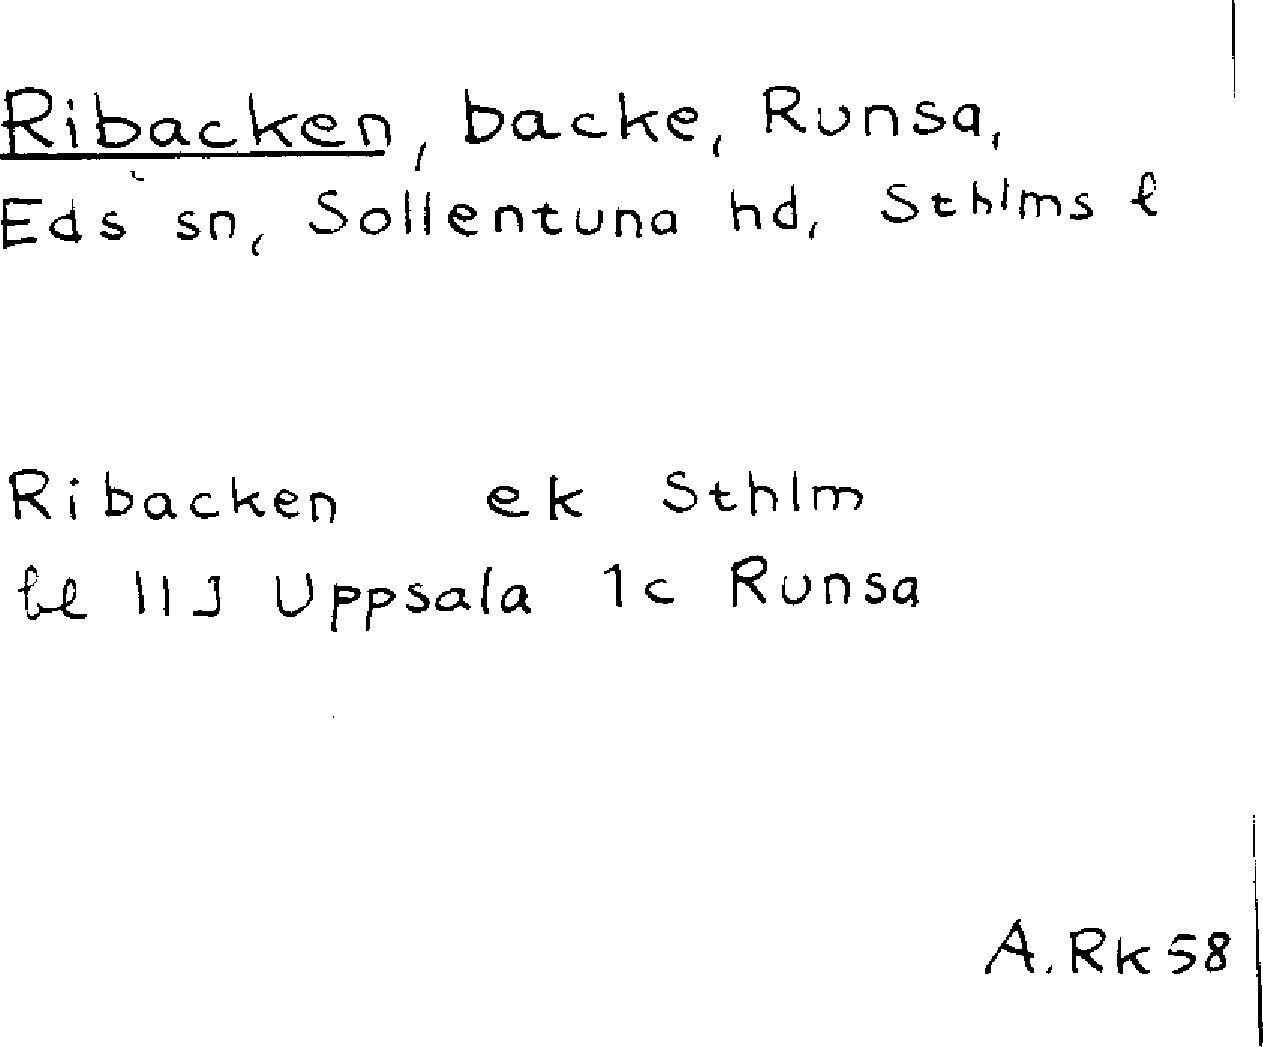 Ribacken, backe, Runsa,
Eds sn, Sollentuna hd, Sthlms l
Ribacken ek Sthlm
bl 11J Uppsala 1c Runsa
A. Rk 58